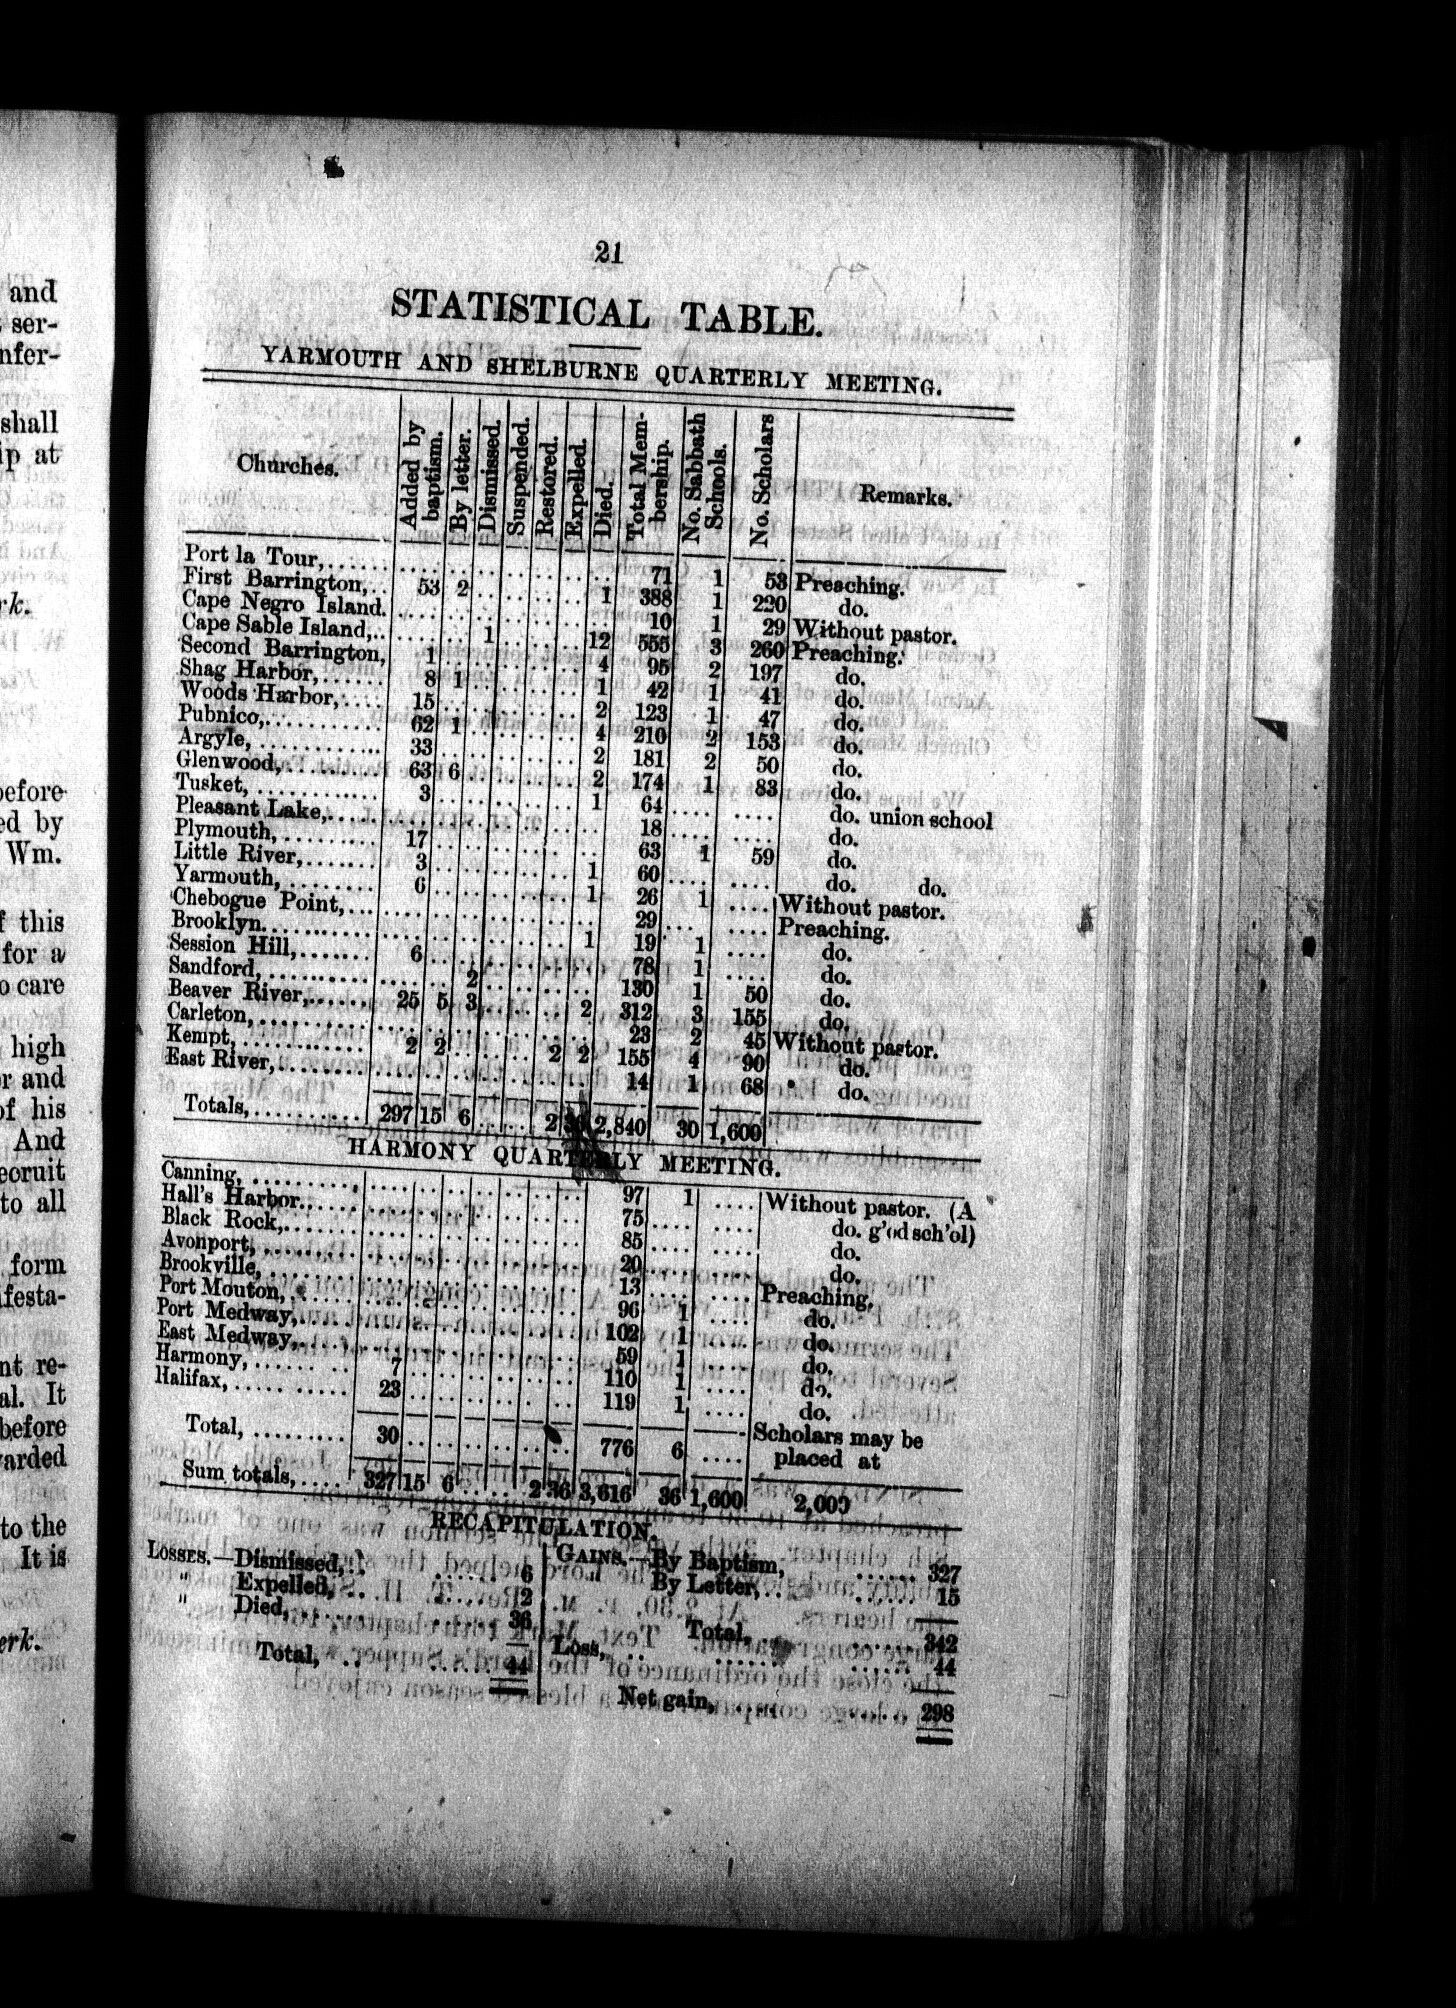 and
ser-
nfer-
shall
ip at
rk.
before
ed by
Wm.
f this
for a
o care
high
r and
of his
And
ecruit
to all
form
ifesta-
nt re-
al. It
before
varded
to the
It is
erk.
21
STATISTICAL TABLE.
YARMOUTH AND SHELBURNE QUARTERLY MEETING.
Churches. Added by baptism. By letter. Dismissed. Suspended. Restored. Expelled. Died. Total Mem-bership. No. Sabbath Schools. No. Scholars Remarks.
Port la Tour, 71 1 53 Preaching.
First Barrington, 53 2 1 388 1 220 do.
Cape Negro Island. 10 1 29 Without pastor.
Cape Sable Island, 1 12 555 3 260 Preaching.
Second Barrington, 1 4 95 2 197 do.
Shag Harbor, 8 1 1 42 1 41 do.
Woods Harbor, 15 2 123 1 47 do.
Pubnico, 62 1 4 210 2 153 do.
Argyle, 33 2 181 2 50 do.
Glenwood, 63 6 2 174 1 83 do.
Tusket, 3 1 64 do. union school
Pleasant Lake, 18 do.
Plymouth, 17 63 1 59 do.
Little River, 3 1 60 do. do.
Yarmouth, 6 1 26 1 Without pastor.
Chebogue Point, 29 Preaching.
Brooklyn. 1 19 1 do.
Session Hill, 6 78 1 do.
Sandford, 2 130 1 50 do.
Beaver River, 25 5 3 2 312 3 155 do.
Carleton, 23 2 45 Without pastor.
Kempt, 2 2 2 2 155 4 90 do.
East River, 14 1 68 do.
Totals, 297 15 6 2 2,840 30 1,600
HARMONY QUARTERLY MEETING.
Canning, 97 1 Without pastor. (A
Hall's Harbor. 75 do. g'od sch'ol)
Black Rock, 85 do.
Avonport, 20 do.
Brookville, 13 Preaching,
Port Mouton, 96 1 do.
Port Medway, 102 1 do.
East Medway, 59 1 do.
Harmony, 7 110 1 do.
Halifax, 23 119 1 do.
Total, 30 776 6 Scholars may be placed at
Sum totals, 327 15 6 2 36 3,616 36 1,600 2,000
RECAPITULATION.
LOSSES.—Dismissed, 6 GAINS.—By Baptism, 327
" Expelled, 2 " By Letter, 15
" Died, 36 Total, 342
Total, 44 Loss, 44
Net gain, 298